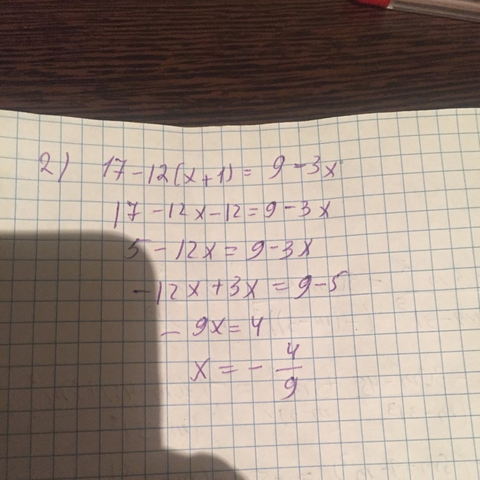 2) 17 - 12(x+1) = 9 - 3x
17 - 12x - 12 = 9 - 3x
5 - 12x = 9 - 3x
- 12x + 3x = 9 - 5
- 9x = 4
x = - 4/9